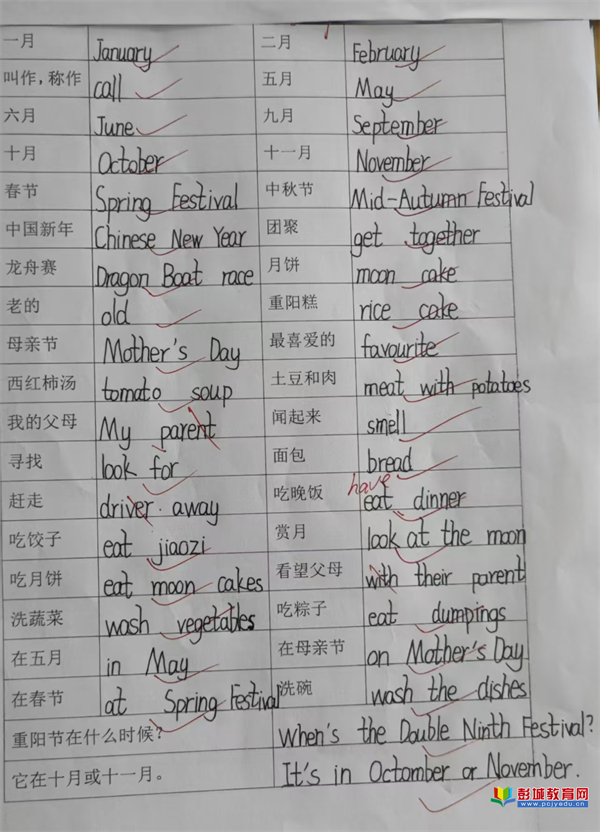 一月 January 二月 February
叫作，称作 call 五月 May
六月 June 九月 September
十月 October 十一月 November
春节 Spring Festival 中秋节 Mid-Autumn Festival
中国新年 Chinese New Year 团聚 get together
龙舟赛 Dragon Boat race 月饼 moon cake
老的 old 重阳糕 rice cake
母亲节 Mother's Day 最喜爱的 favourite
西红柿汤 tomato soup 土豆和肉 meat with potatoes
我的父母 My parent 闻起来 smell
寻找 look for 面包 bread
have
赶走 driver away 吃晚饭 eat dinner
吃饺子 eat jiaozi 赏月 look at the moon
吃月饼 eat moon cakes 看望父母 with their parent
洗蔬菜 wash vegetables 吃粽子 eat dumpings
在五月 in May 在母亲节 on Mother's Day
在春节 at Spring Festival 洗碗 wash the dishes
重阳节在什么时候？ When's the Double Ninth Festival?
它在十月或十一月。 It's in Octomber or November.
彭城教育网
www.pcjyedu.cn